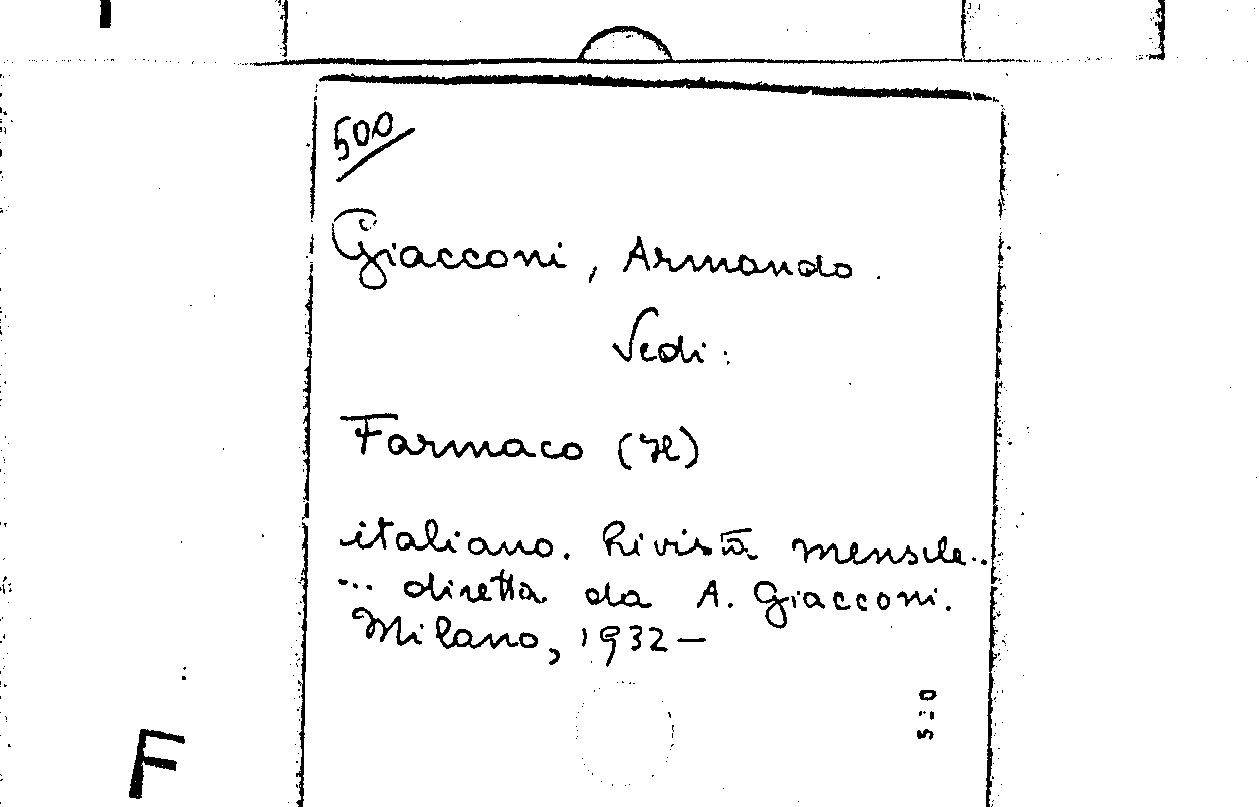 500
Giacconi, Armando.
Vedi:
Farmaco (Il)
italiano. Rivista mensile...
... diretta da A. Giacconi.
Milano, 1932-
F